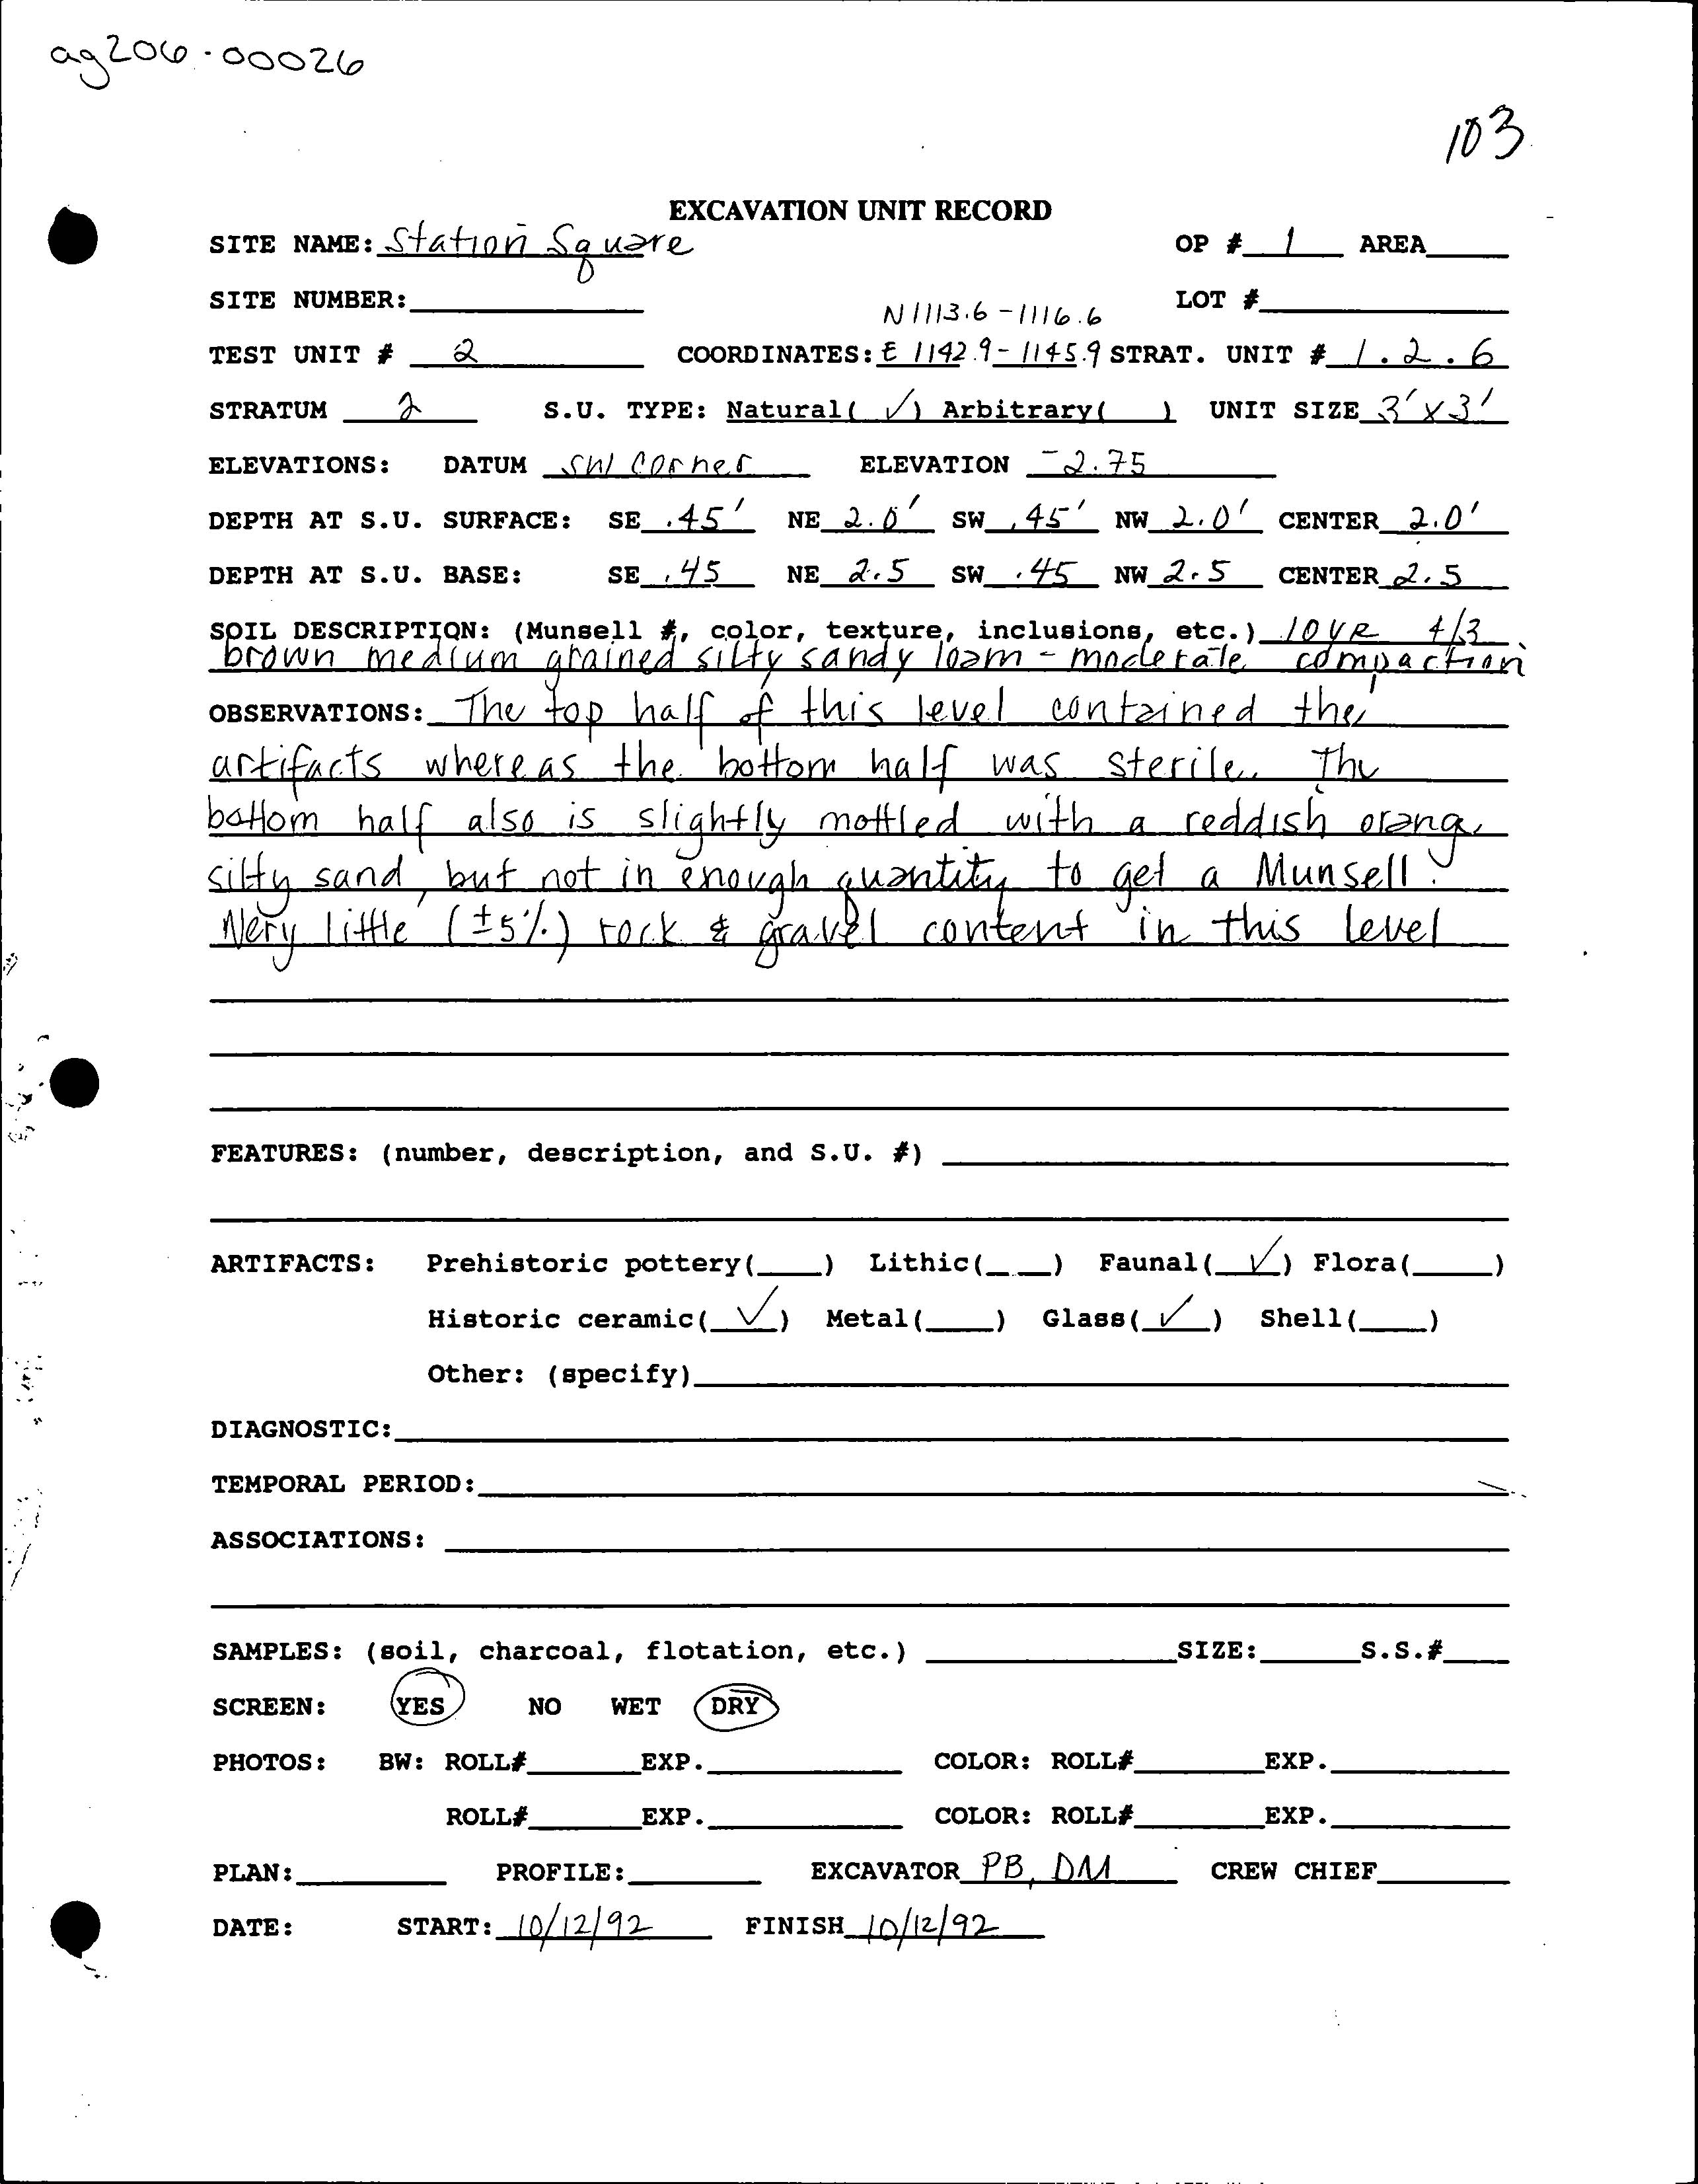 ag206-00026
103
EXCAVATION UNIT RECORD
SITE NAME: Station Square OP # 1 AREA
SITE NUMBER: LOT #
N1113.6-1116.6
TEST UNIT # 2 COORDINATES: E 1142.9-1145.9 STRAT. UNIT # 1.2.6
STRATUM 2 S.U. TYPE: Natural( ✓ ) Arbitrary( ) UNIT SIZE 3'x3'
ELEVATIONS: DATUM SW corner ELEVATION -2.75
DEPTH AT S.U. SURFACE: SE .45' NE 2.0' SW .45' NW 2.0' CENTER 2.0'
DEPTH AT S.U. BASE: SE .45 NE 2.5 SW .45 NW 2.5 CENTER 2.5
SOIL DESCRIPTION: (Munsell #, color, texture, inclusions, etc.) 10YR 4/3
brown medium grained silty sandy loam - moderate compaction
OBSERVATIONS: The top half of this level contained the
artifacts whereas the bottom half was sterile. The
bottom half also is slightly mottled with a reddish orange
silty sand, but not in enough quantity to get a Munsell.
Very little (±5%) rock & gravel content in this level
FEATURES: (number, description, and S.U. #)
ARTIFACTS: Prehistoric pottery( ) Lithic( ) Faunal( ✓ ) Flora( )
Historic ceramic( ✓ ) Metal( ) Glass( ✓ ) Shell( )
Other: (specify)
DIAGNOSTIC:
TEMPORAL PERIOD:
ASSOCIATIONS:
SAMPLES: (soil, charcoal, flotation, etc.) SIZE: S.S.#
SCREEN: YES NO WET DRY
PHOTOS: BW: ROLL# EXP. COLOR: ROLL# EXP.
ROLL# EXP. COLOR: ROLL# EXP.
PLAN: PROFILE: EXCAVATOR PB, DM CREW CHIEF
DATE: START: 10/12/92 FINISH 10/12/92